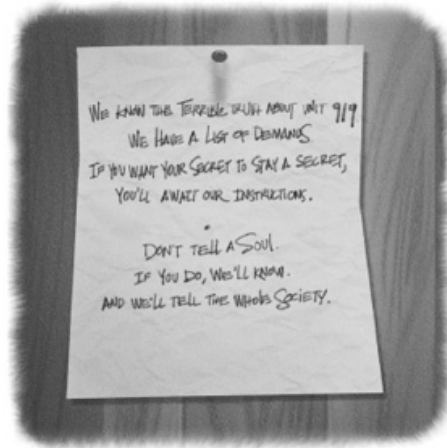 We know the Terrible truth about unit 919
We Have a List of Demands
If you want your Secret to Stay a Secret,
you'll await our Instructions.
Don't tell a Soul.
If you Do, we'll know.
And we'll tell the whole Society.